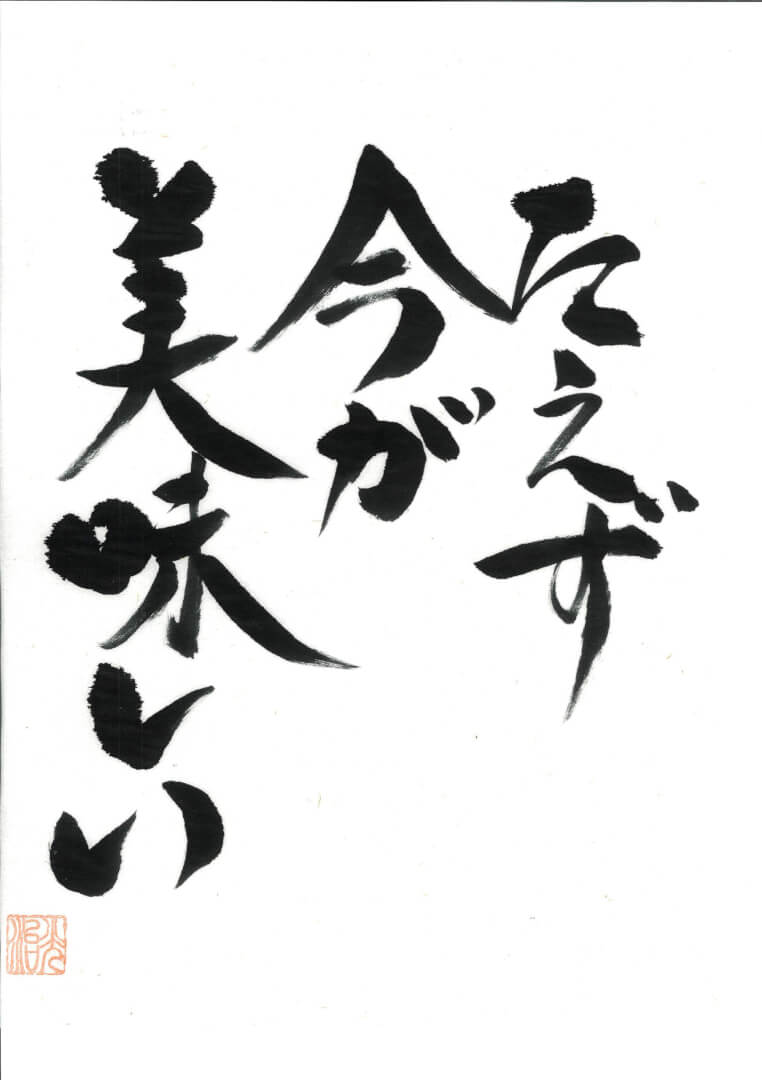 たえず
今が
美味しい